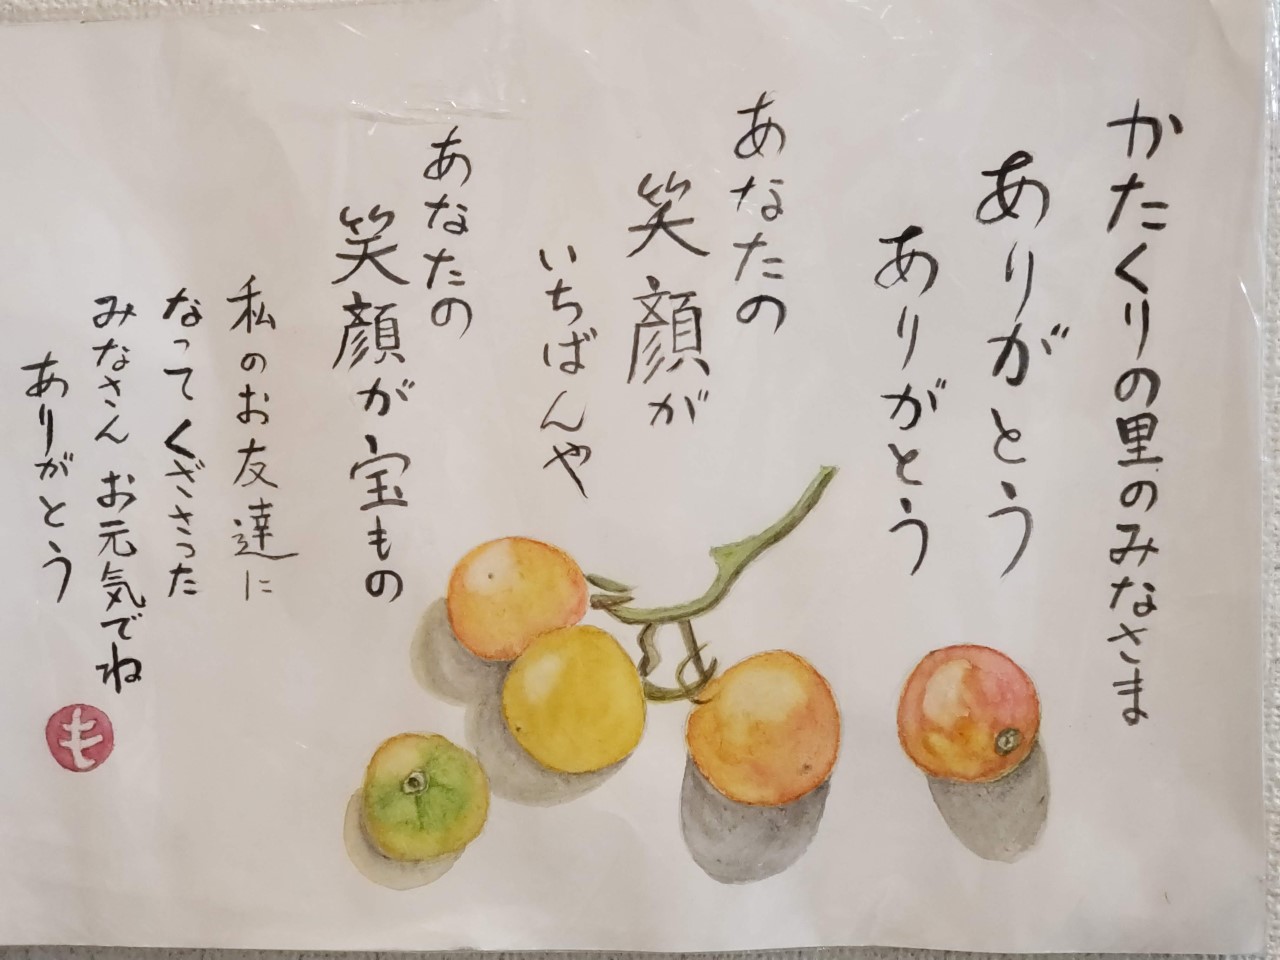 かたくりの里のみなさま
ありがとう
ありがとう
あなたの
笑顔が
いちばんや
あなたの
笑顔が宝もの
私のお友達に
なってくださった
みなさんお元気でね
ありがとう
も